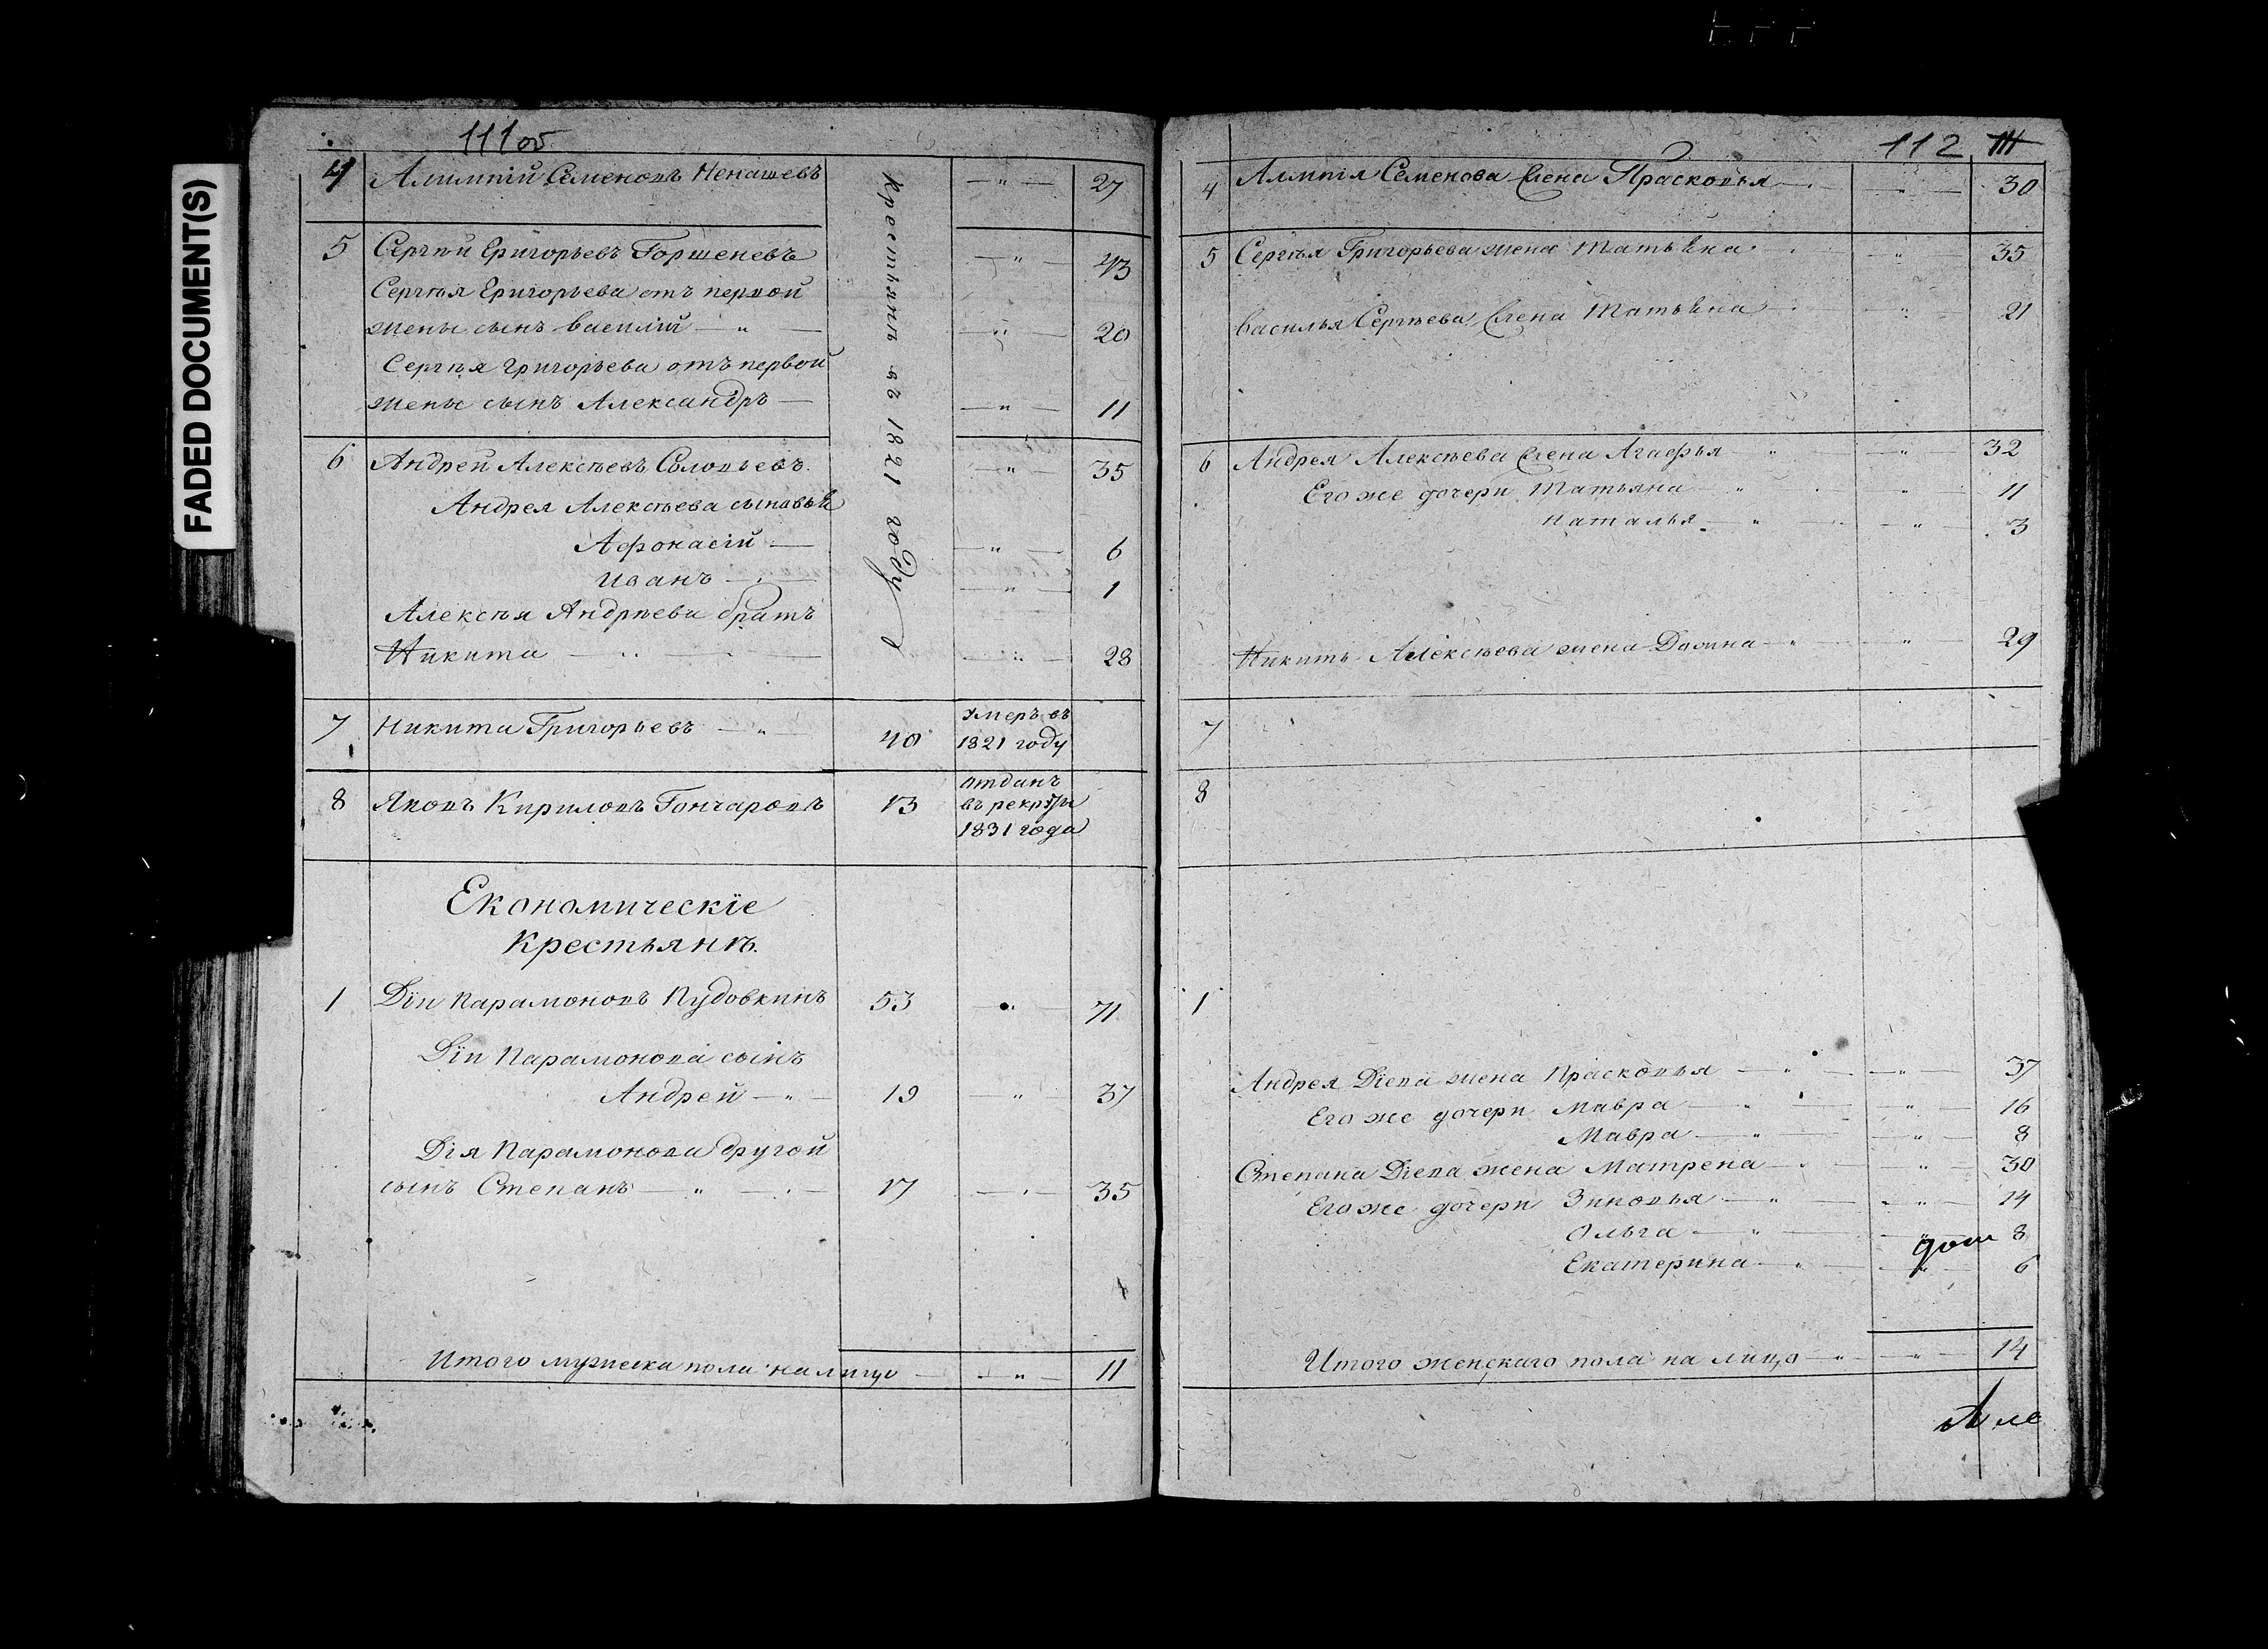 FADED DOCUMENT(S)
111об
4 Алимпій Семеновъ Ненашевъ — " — 27
5 Сергѣй Григорьевъ Горшеневъ — " — 43
Сергѣя Григорьева отъ первой
жены сынъ Василій — " — — " — 20
Сергѣя Григорьева отъ первой
жены сынъ Александръ — — " — 11
6 Андрей Алексѣевъ Соловьевъ — " — 35
Андрея Алексѣева сыновья
Афонасій — — " — 6
Иванъ — — " — 1
Алексѣя Андрѣева братъ
Никита — — " — 28
въ 1821 году
7 Никита Григорьевъ — " 40 умеръ въ
1821 году
8 Яковъ Кириловъ Гончаровъ 13 отданъ
въ рекруты
1831 года
Економическіе
Крестьянѣ.
1 Дій Парамоновъ Пудовкинъ 53 — " — 71
Дія Парамонова сынъ
Андрей — " — 19 — " — 37
Дія Парамонова другой
сынъ Степанъ — " — 17 — " — 35
Итого мужеска пола на лицо — — " — 11
112 111
4 Алмпія Семенова жена Прасковья — — " — 30
5 Сергѣя Григорьева жена Татьяна — " — 35
Василья Сергѣева жена Татьяна — " — 21
6 Андрея Алексѣева жена Агафья — " — — " — 32
Его же дочери Татьяна — " — " — 11
Наталья — " — — " — 3
Никиты Алексѣева жена Домна — " — — " — 29
7
8
1
Андрея Діева жена Прасковья — " — — " — 37
Его же дочери Мавра — " — — " — 16
Мавра — " — — " — 8
Степана Діева жена Матрена — " — " — 30
Его же дочери Зиновья — " — — " — 14
Ольга — " — 8
Екатерина — " — — " — 6
Итого женскаго пола на лицо — " — — " — 14